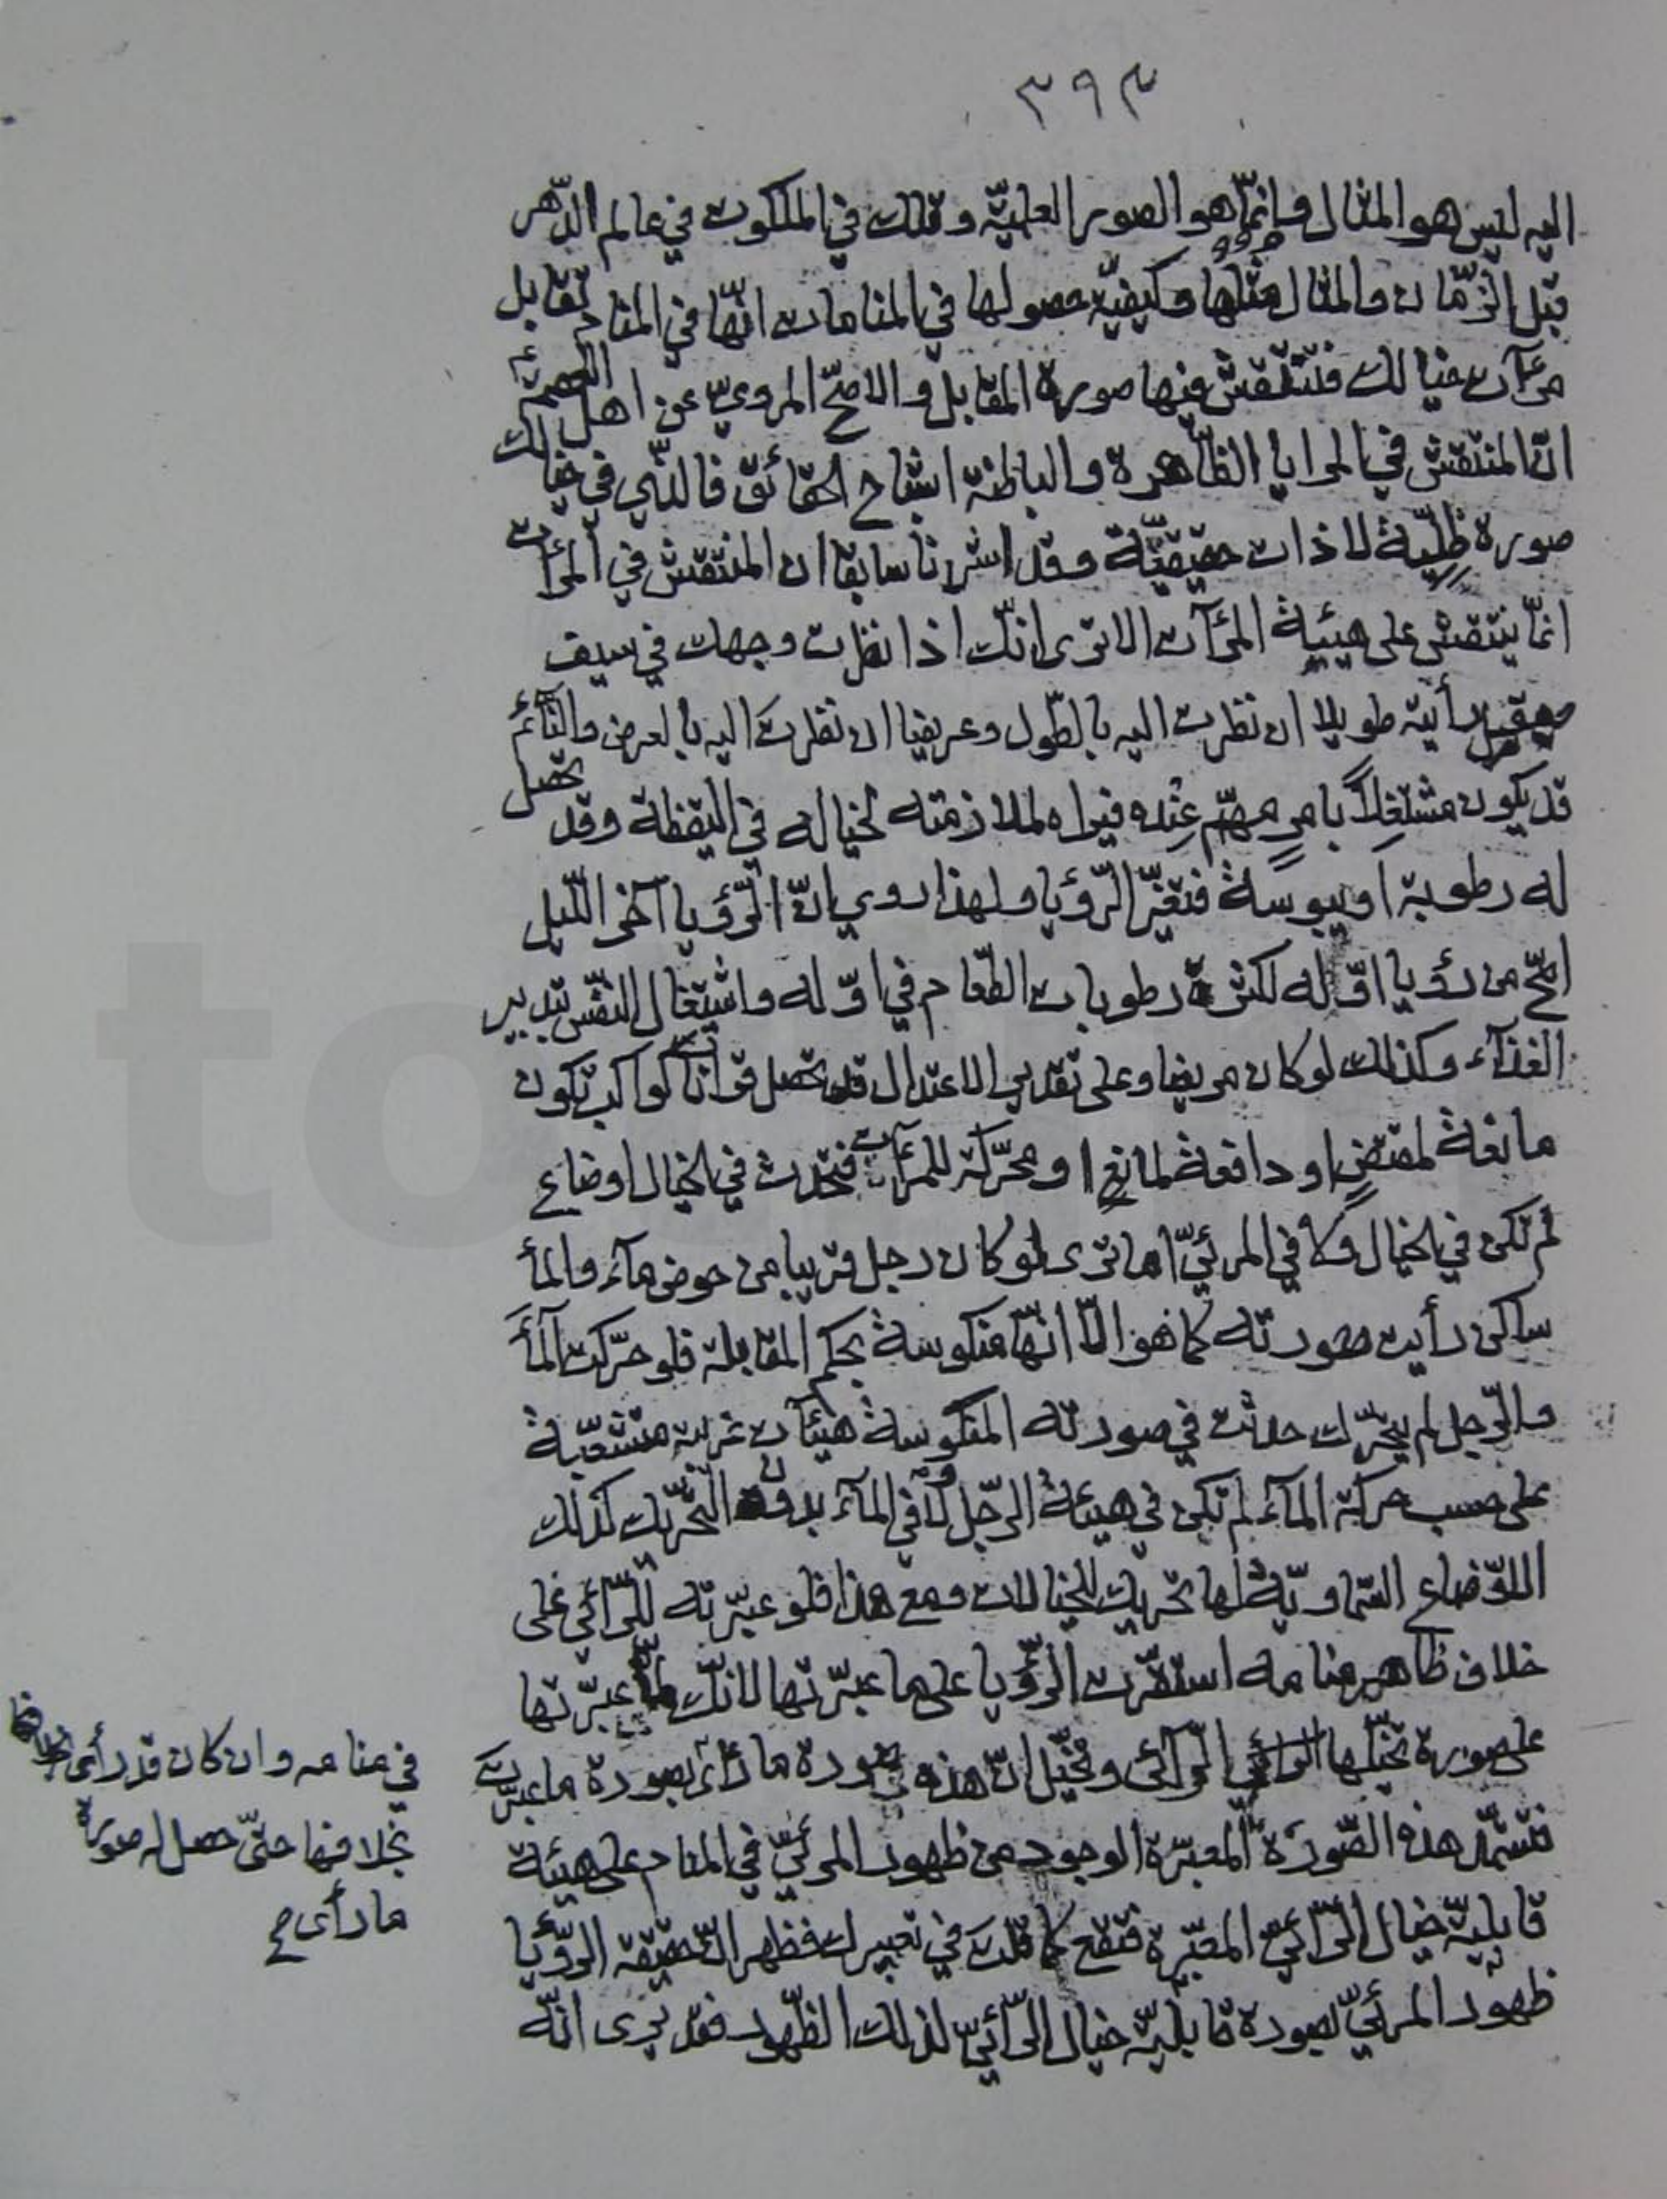 ٣٩٣
اليه ليس هو المثال وانّما هو الصور العلميّة وتلك في الملكوت في عالم الدّهر
قبل الزّمان والمثال مثلها وكيفيّة حصولها في المنامات انّها في المنام تقابل
مرءآت خيالك فتنتقش فيها صورة المقابل والاصحّ المروىّ عن اهل العصمة
انّ المنتقش في المرايا الظّاهرة والباطنة اشباح الحقائق فالّذي في خيالك
صورة ظلّيّة لا ذات حقيقيّة وقد اشرنا سابقا ان المنتقش في المرءآت
انّما ينتقش على هيئة المرءآت الا ترى انّك اذا نظرت وجهك في سيف
صيقل رأيته طويلا ان نظرت اليه بالطّول وعريضا ان نظرت اليه بالعرض والنّآئم
قد يكون مشتغلاً بامرٍ مهمّ عنده فيراه لملازمته لخياله في اليقظة وقد تحصل
له رطوبة او يبوسة فتغيّر الرّؤيا ولهذا روي انّ الرّؤيا آخر اللّيل
اصحّ من رؤيا اوّله لكثرة رطوبات الطّعام في اوّله واشتغال النّفس بتدبير
الغذآء وكذلك لو كان مريضا وعلى تقدير الاعتدال قد تحصل قرانات كواكب تكون
مانعة لمقتضٍ او دافعة لمانعٍ او محرّكة للمرءآت فتحدث في الخيال اوضاع
لم تكن في الخيال ولا في المرئيّ اما ترى لو كان رجل قريبا من حوض مآء والمآء
ساكن رأيت صورته كما هو الّا انّها منكوسة بحكم المقابلة فلو حرّكت المآء
والرّجل لم يتحرّك حدثت في صورته المنكوسة هيئآت غريبة متشعّبة
على حسب حركة المآء لم تكن في هيئة الرّجل ولا في المآء بدون التّحريك كذلك
الاوضاع السّماويّة لها تحريك للخيالات ومع هذا فلو عبّرته للرّائي على
خلاف ظاهر منامه استقرّت الرّؤيا على ما عبّرتها لانّك لمّا عبّرتها
على صورة تخيّلها الرّآئى وتخيّل انّ هذه صورة ما رأى بصورة ما عبّرت
فتستمدّ هذه الصّورة المعبّرة الوجود من ظهور المرئىّ في المنام على هيئة
قابليّة خيال الرّآئي المعبّرة فتقع كما قلت في تعبيرك فظهر انّ حقيقة الرّؤيا
ظهور المرئيّ بصورة قابليّة خيال الرّآئيّ لذلك الظّهور فقد يرى انّه
في منامه وان كان قد رأى
بخلافها حتّى حصل له صورة
ما رأى صح